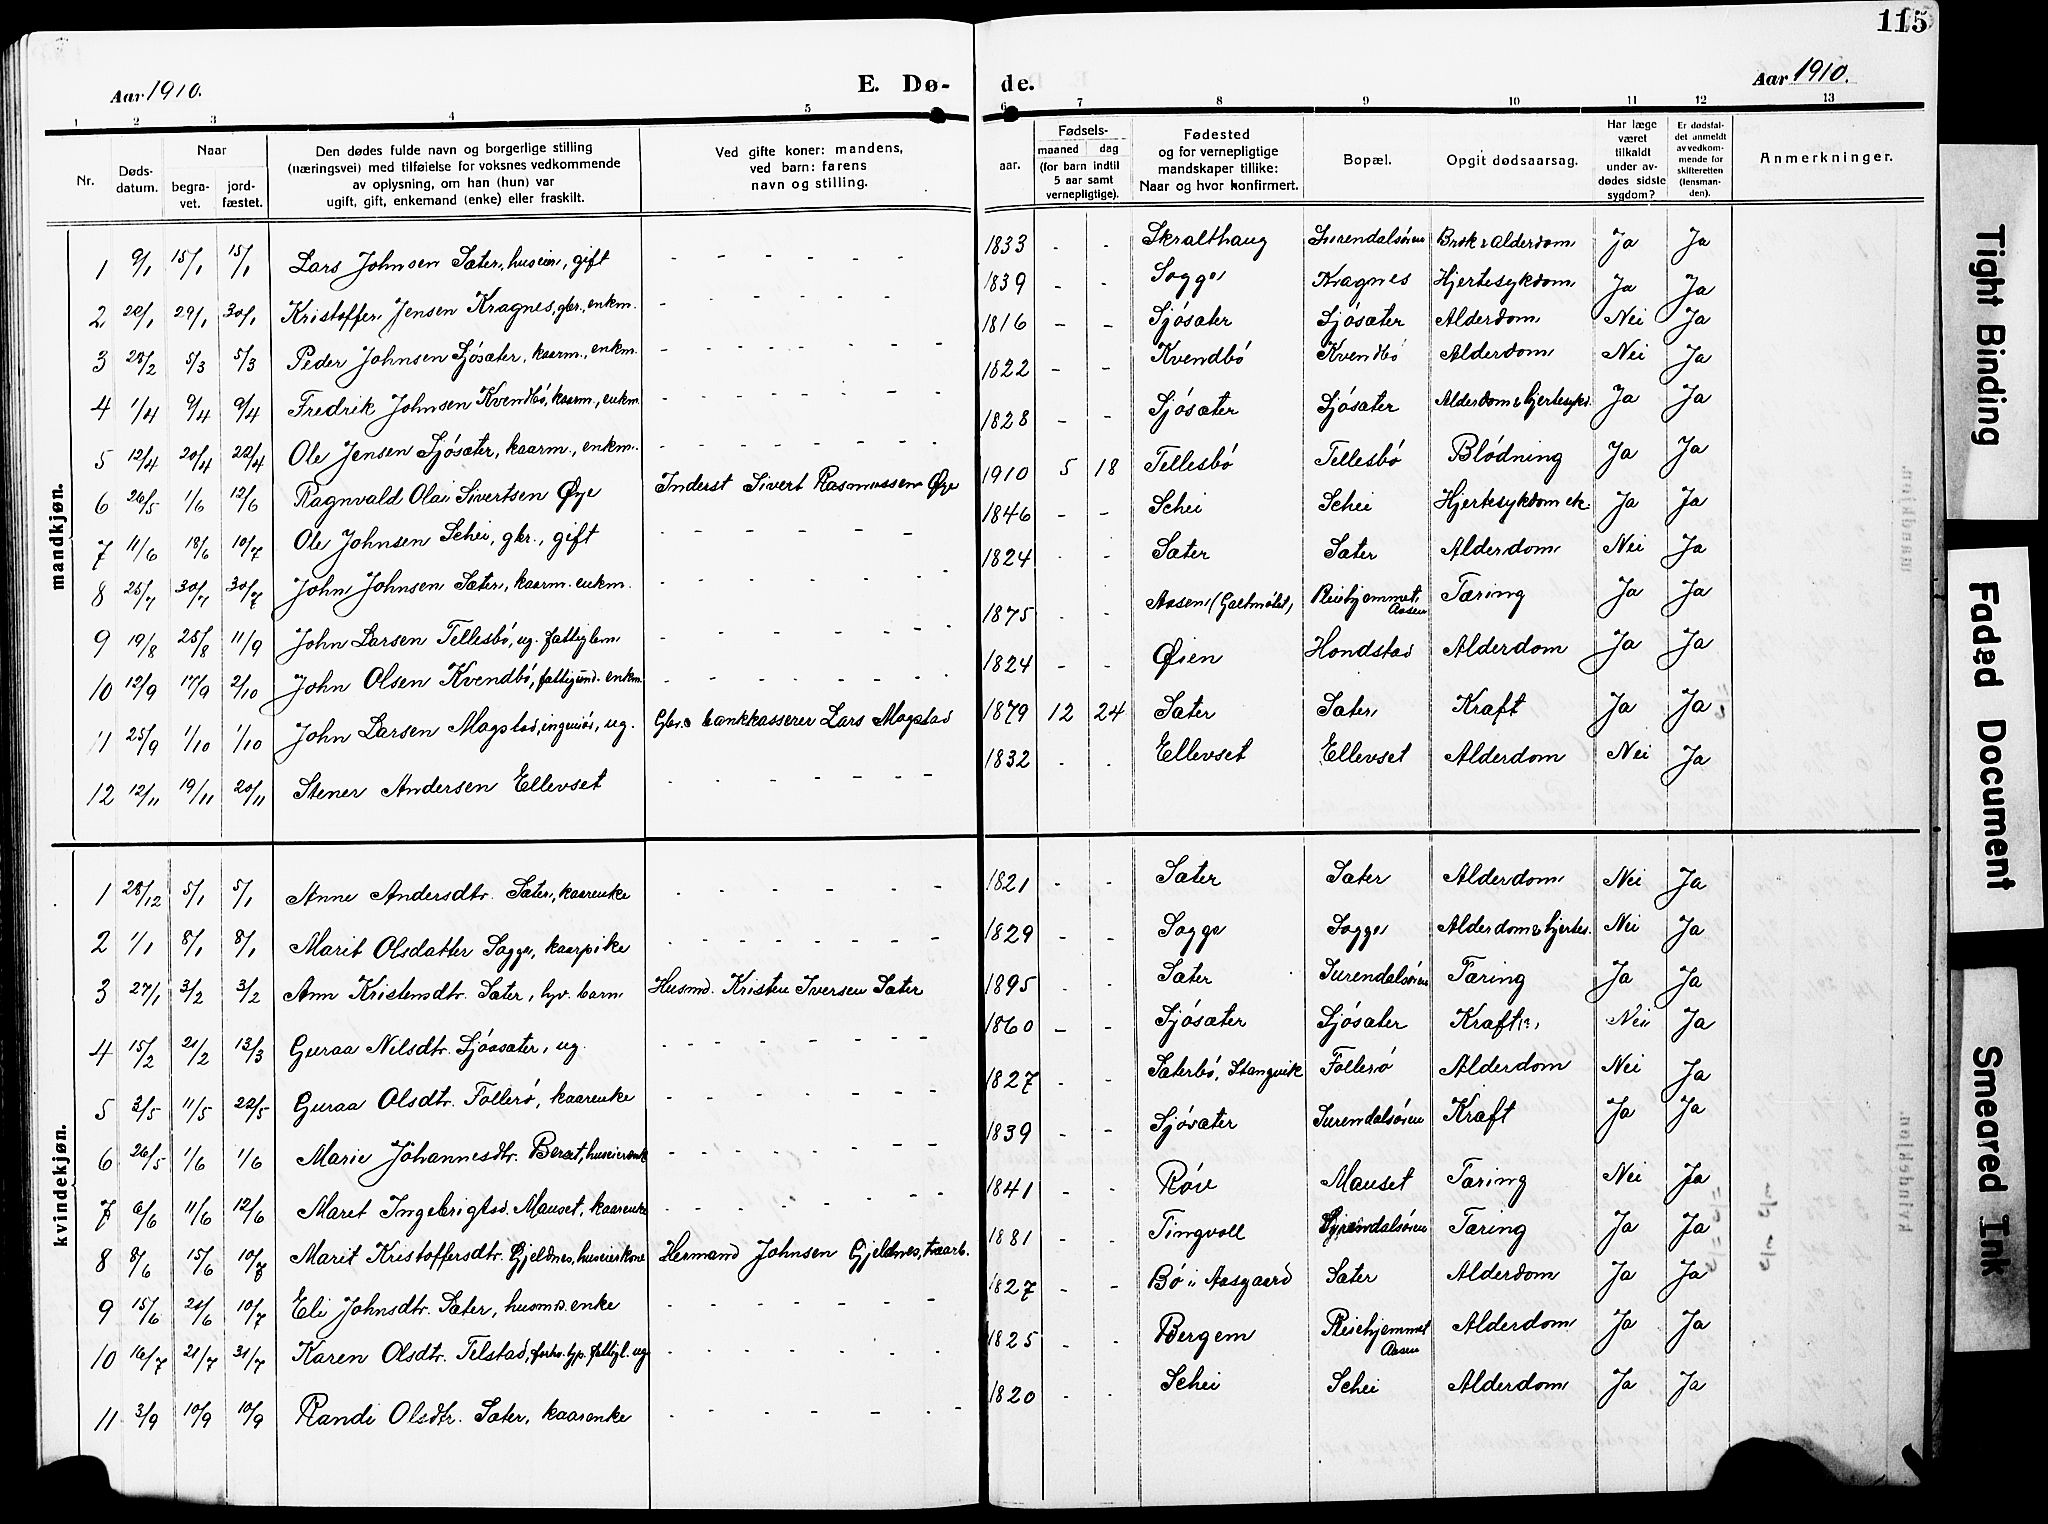 115
Aar 1910. E. Dø- de. Aar 1910.
1 2 3 4 5 6 7 8 9 10 11 12 13
Nr. Døds-datum. Naar begra-vet. jord-fæstet. Den dødes fulde navn og borgerlige stilling (næringsvei) med tilføielse for voksnes vedkommende av oplysning, om han (hun) var ugift, gift, enkemand (enke) eller fraskilt. Ved gifte koner: mandens, ved barn: farens navn og stilling. aar. Fødsels- maaned dag (for barn indtil 5 aar samt vernepligtige). Fødested og for vernepligtige mandskaper tillike: Naar og hvor konfirmert. Bopæl. Opgit dødsaarsag. Har læge været tilkaldt under av-dødes sidste sygdom? Er dødsfal-det anmeldt av vedkom-mende for skifteretten (lensman-den). Anmerkninger.
mandkjøn.
1 9/1 15/1 15/1 Lars Johnsen Sæter, huseier, gift - - - - - - 1833 - - Skralthaug Surendalsøren Brok & Alderdom Ja Ja
2 22/1 29/1 30/1 Kristoffer Jensen Kragnes, gbr., enkm. - - - - - - 1839 - - Sogge Kragnes Hjertesykdom Ja Ja
3 28/2 5/3 5/3 Peder Johnsen Sjøsæter, kaarm., enkm. - - - - - - - 1816 - - Sjøsæter Sjøsæter Alderdom Nei Ja
4 1/4 9/4 9/4 Fredrik Johnsen Kvendbø, kaarm., enkm. - - - - - - - 1822 - - Kvendbø Kvendbø Alderdom Nei Ja
5 12/4 20/4 22/4 Ole Jensen Sjøsæter, kaarm., enkm. - - - - - - - 1828 - - Sjøsæter Sjøsæter Alderdom & hjertesykd. Ja Ja
6 26/5 1/6 12/6 Ragnvald Olai Sivertsen Øye Inderst Sivert Rasmussen Øye 1910 5 18 Tellesbø Tellesbø Blødning Ja Ja
7 11/6 18/6 10/7 Ole Johnsen Schei, gbr., gift - - - - - 1846 - - Schei Schei Hjertesykdom etc. Ja Ja
8 25/7 30/7 30/7 John Johnsen Sæter, kaarm. enkm. - - - - - - - 1824 - - Sæter Sæter Alderdom Nei Ja
9 19/8 25/8 11/9 John Larsen Tellesbø, ug. fattiglem - - - - - - - 1875 - - Aasen Pleiehjemmet, Aasen Tæring Ja Ja
10 12/9 17/9 2/10 John Olsen Kvendbø, enkm. - - - - - - - 1824 - - Øien Hondstad Alderdom Ja Ja
11 25/9 1/10 1/10 John Larsen Magstad, ingeniør, ug. Gbr. & bankkasserer Lars Magstad 1879 12 24 Sæter Sæter Kræft Ja Ja
12 12/11 19/11 20/11 Stener Andersen Ellevset - - - - - - - 1832 - - Ellevset Ellevset Alderdom Nei Ja
kvindekjøn.
1 28/12 5/1 5/1 Anne Andersdtr. Sæter, kaarenke - - - - - - 1821 - - Sæter Sæter Alderdom Nei Ja
2 1/1 8/1 8/1 Marit Olsdatter Sogge, kaarpike - - - - - - - 1829 - - Sogge Sogge Alderdom & hjertes. Nei Ja
3 27/1 3/2 3/2 Ann Kristensdtr. Sæter, tyv. barn Husmd. Kristen Iversen Sæter 1895 - - Sæter Surendalsøren Tæring Ja Ja
4 15/2 21/2 13/3 Guraa Nilsdtr. Sjøsæter, ug. - - - - - - - - 1860 - - Sjøsæter Sjøsæter Kræft Nei Ja
5 3/5 11/5 22/5 Guraa Olsdtr. Follerø, kaarenke - - - - - - - 1827 - - Sæterbø, Stangvik Follerø Alderdom Nei Ja
6 26/5 1/6 1/6 Marie Johannesdtr. Berset, huseierenke - - - - - - - 1839 - - Sjøsæter Surendalsøren Kræft Ja Ja
7 6/6 11/6 12/6 Maret Ingebrigtsd. Mauset, kaarenke - - - - - - - 1841 - - Røv Mauset Tæring Nei Ja
8 8/6 15/6 10/7 Marit Kristoffersdtr. Gjeldnes, huseierkone Hermand Johnsen Gjeldnes, træarb. 1881 - - Tingvoll Surendalsøren Tæring Ja Ja
9 15/6 20/6 10/7 Eli Johnsdtr. Sæter, husmd. enke - - - - - - - 1827 - - Bø i Aasgaard Sæter Alderdom Ja Ja
10 16/7 21/7 31/7 Karen Olsdtr. Telstad, ug - - - - - - - 1825 - - Bergem Pleiehjemmet Aasen Alderdom Ja Ja
11 3/9 10/9 10/9 Randi Olsdtr. Sæter, kaarenke - - - - - - - 1820 - - Schei Schei Alderdom Ja Ja
Tight Binding
Faded Document
Smeared Ink